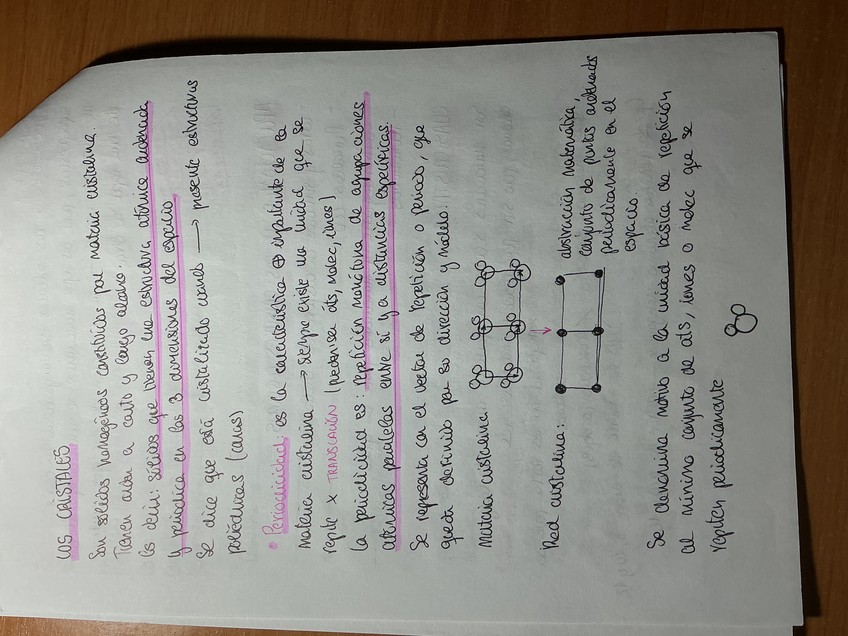 LOS CRISTALES
Son sólidos homogéneos constituidos por materia cristalina.
Tienen orden a corto y largo alcance.
Es decir: sólidos que tienen una estructura atómica ordenada
y periódica en las 3 dimensiones del espacio
Se dice que está cristalizado cuando → presente estructuras
poliédricas (caras)
• Periodicidad: es la característica ⊕ importante de la
materia cristalina → siempre existe una unidad que se
repite x TRANSLACIÓN (pueden ser áts, molec, iones)
La periodicidad es: repetición monótona de agrupaciones
atómicas paralelas entre sí y a distancias específicas.
Se representa con el vector de repetición o periodo, que
queda definido por su dirección y módulo.
Materia cristalina:
Red cristalina:
abstracción matemática,
conjunto de puntos ordenados
periódicamente en el
espacio
Se denomina motivo a la unidad básica de repetición
al mínimo conjunto de ats, iones o molec que se
repiten periódicamente